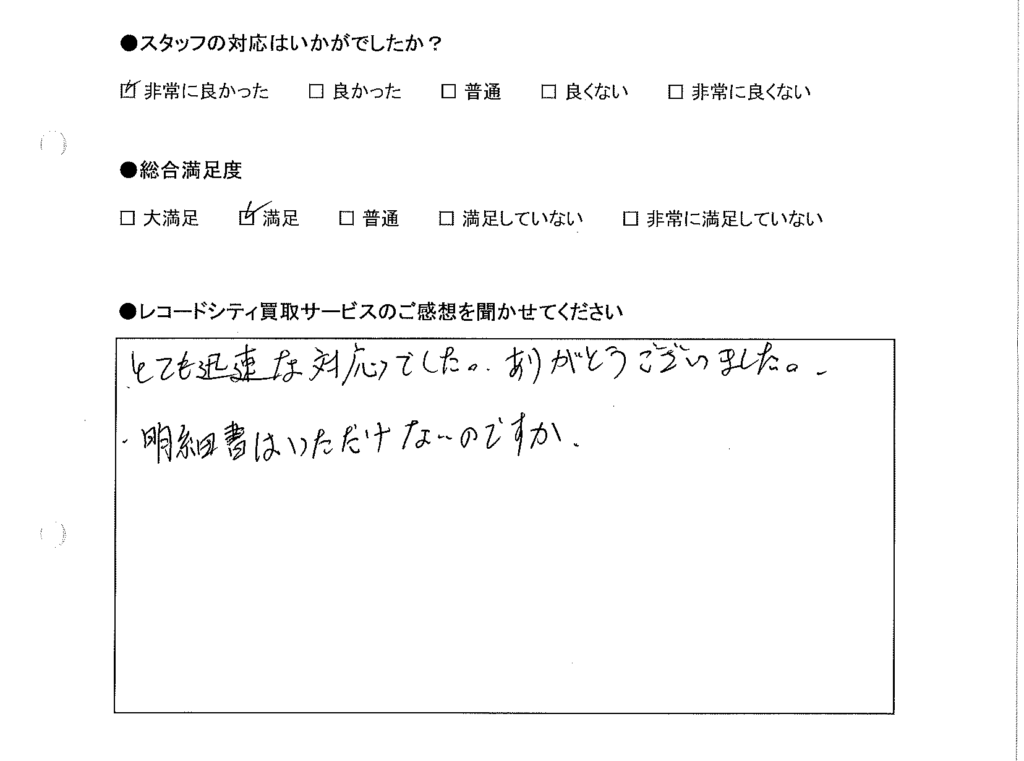 ●スタッフの対応はいかがでしたか？
☑ 非常に良かった □ 良かった □ 普通 □ 良くない □ 非常に良くない
●総合満足度
□ 大満足 ☑ 満足 □ 普通 □ 満足していない □ 非常に満足していない
●レコードシティ買取サービスのご感想を聞かせてください
とても迅速な対応でした。ありがとうございました。
・明細書はいただけないのですか.